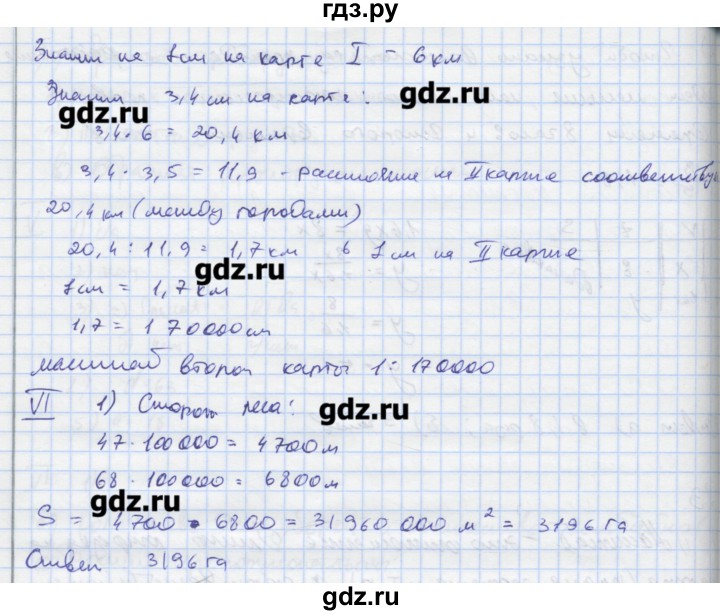 гдз.ру
Значит на 1 см на карте I - 6 км
Значит 3,4 см на карте:
gdz.ru
3,4 · 6 = 20,4 км
3,4 · 3,5 = 11,9 - расстояние на II карте соответству
20,4 км (между городами)
20,4 : 11,9 = 1,7 км в 1 см на II карте
gdz.ru
1 см = 1,7 км
1,7 = 170000 см
масштаб второй карты 1 : 170000
VI 1) Стороны леса:
gdz.ru
47 · 100000 = 4700 м
68 · 100000 = 6800 м
gdz.ru
S = 4700 · 6800 = 31960 000 м² = 3196 га
Ответ 3196 га
gdz.ru